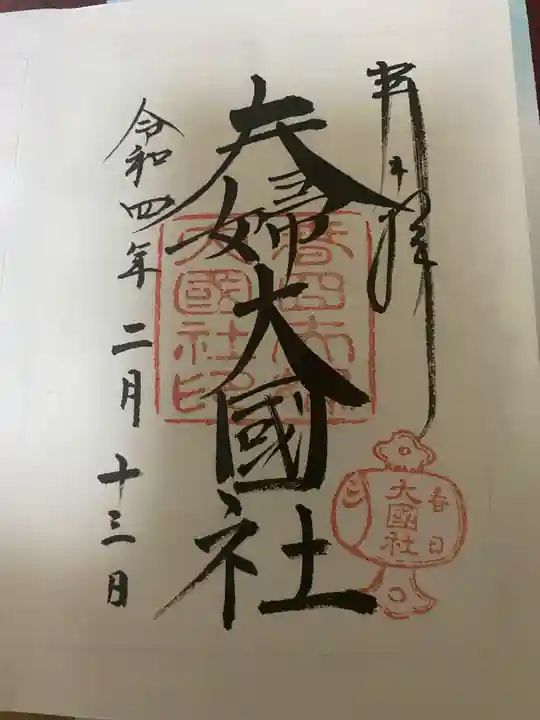 奉拝
夫婦大國社
令和四年二月十三日
春日大社
大國社印
春日
大國社